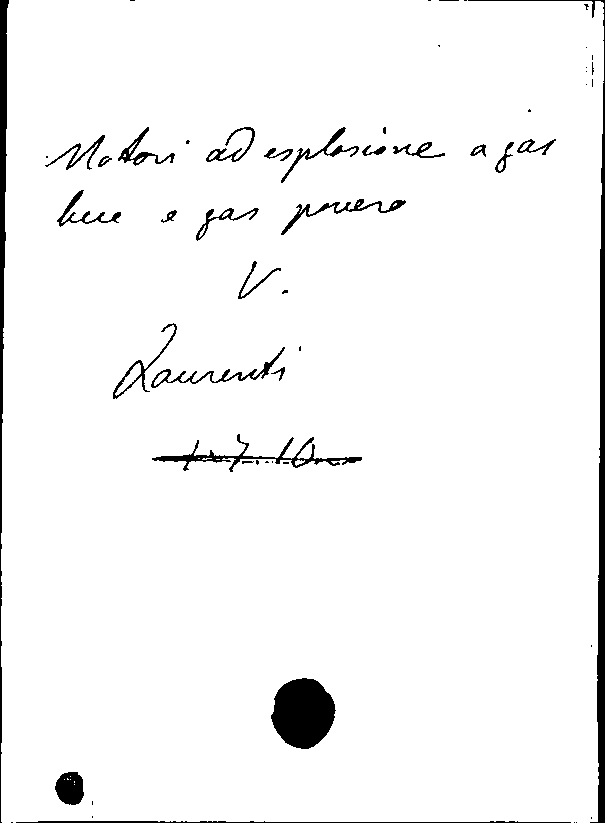 Motori ad esplosione a gas
luce e gas povero
V.
Laurenti
1.7.10